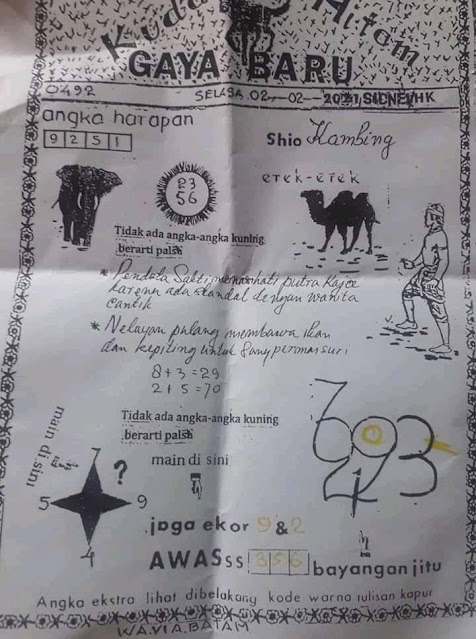 Kuda Hitam
GAYA BARU
0492
SELASA.02,-02--2021,SIDNEY/HK
angka harapan
9 2 5 1
Shio Kambing
erek-erek
23
56
Tidak ada angka-angka kuning
berarti palsh
* Pendeta Sakti menasehati putra Raja
karena ada skandal dengan wanita
cantik
* Nelayan pulang membawa ikan
dan kepiting untuk Sang permaisuri
8+3=29
2+5=70
Tidak ada angka-angka kuning
berarti palsh
main di sini
main di sini
7
?
5
9
4
7
6 0 9 3
4 2
jaga ekor 9 & 2
AWASss 3 5 6 bayangan jitu
Angka ekstra lihat dibelakang kode warna tulisan kapur
WAVIA.BATAM